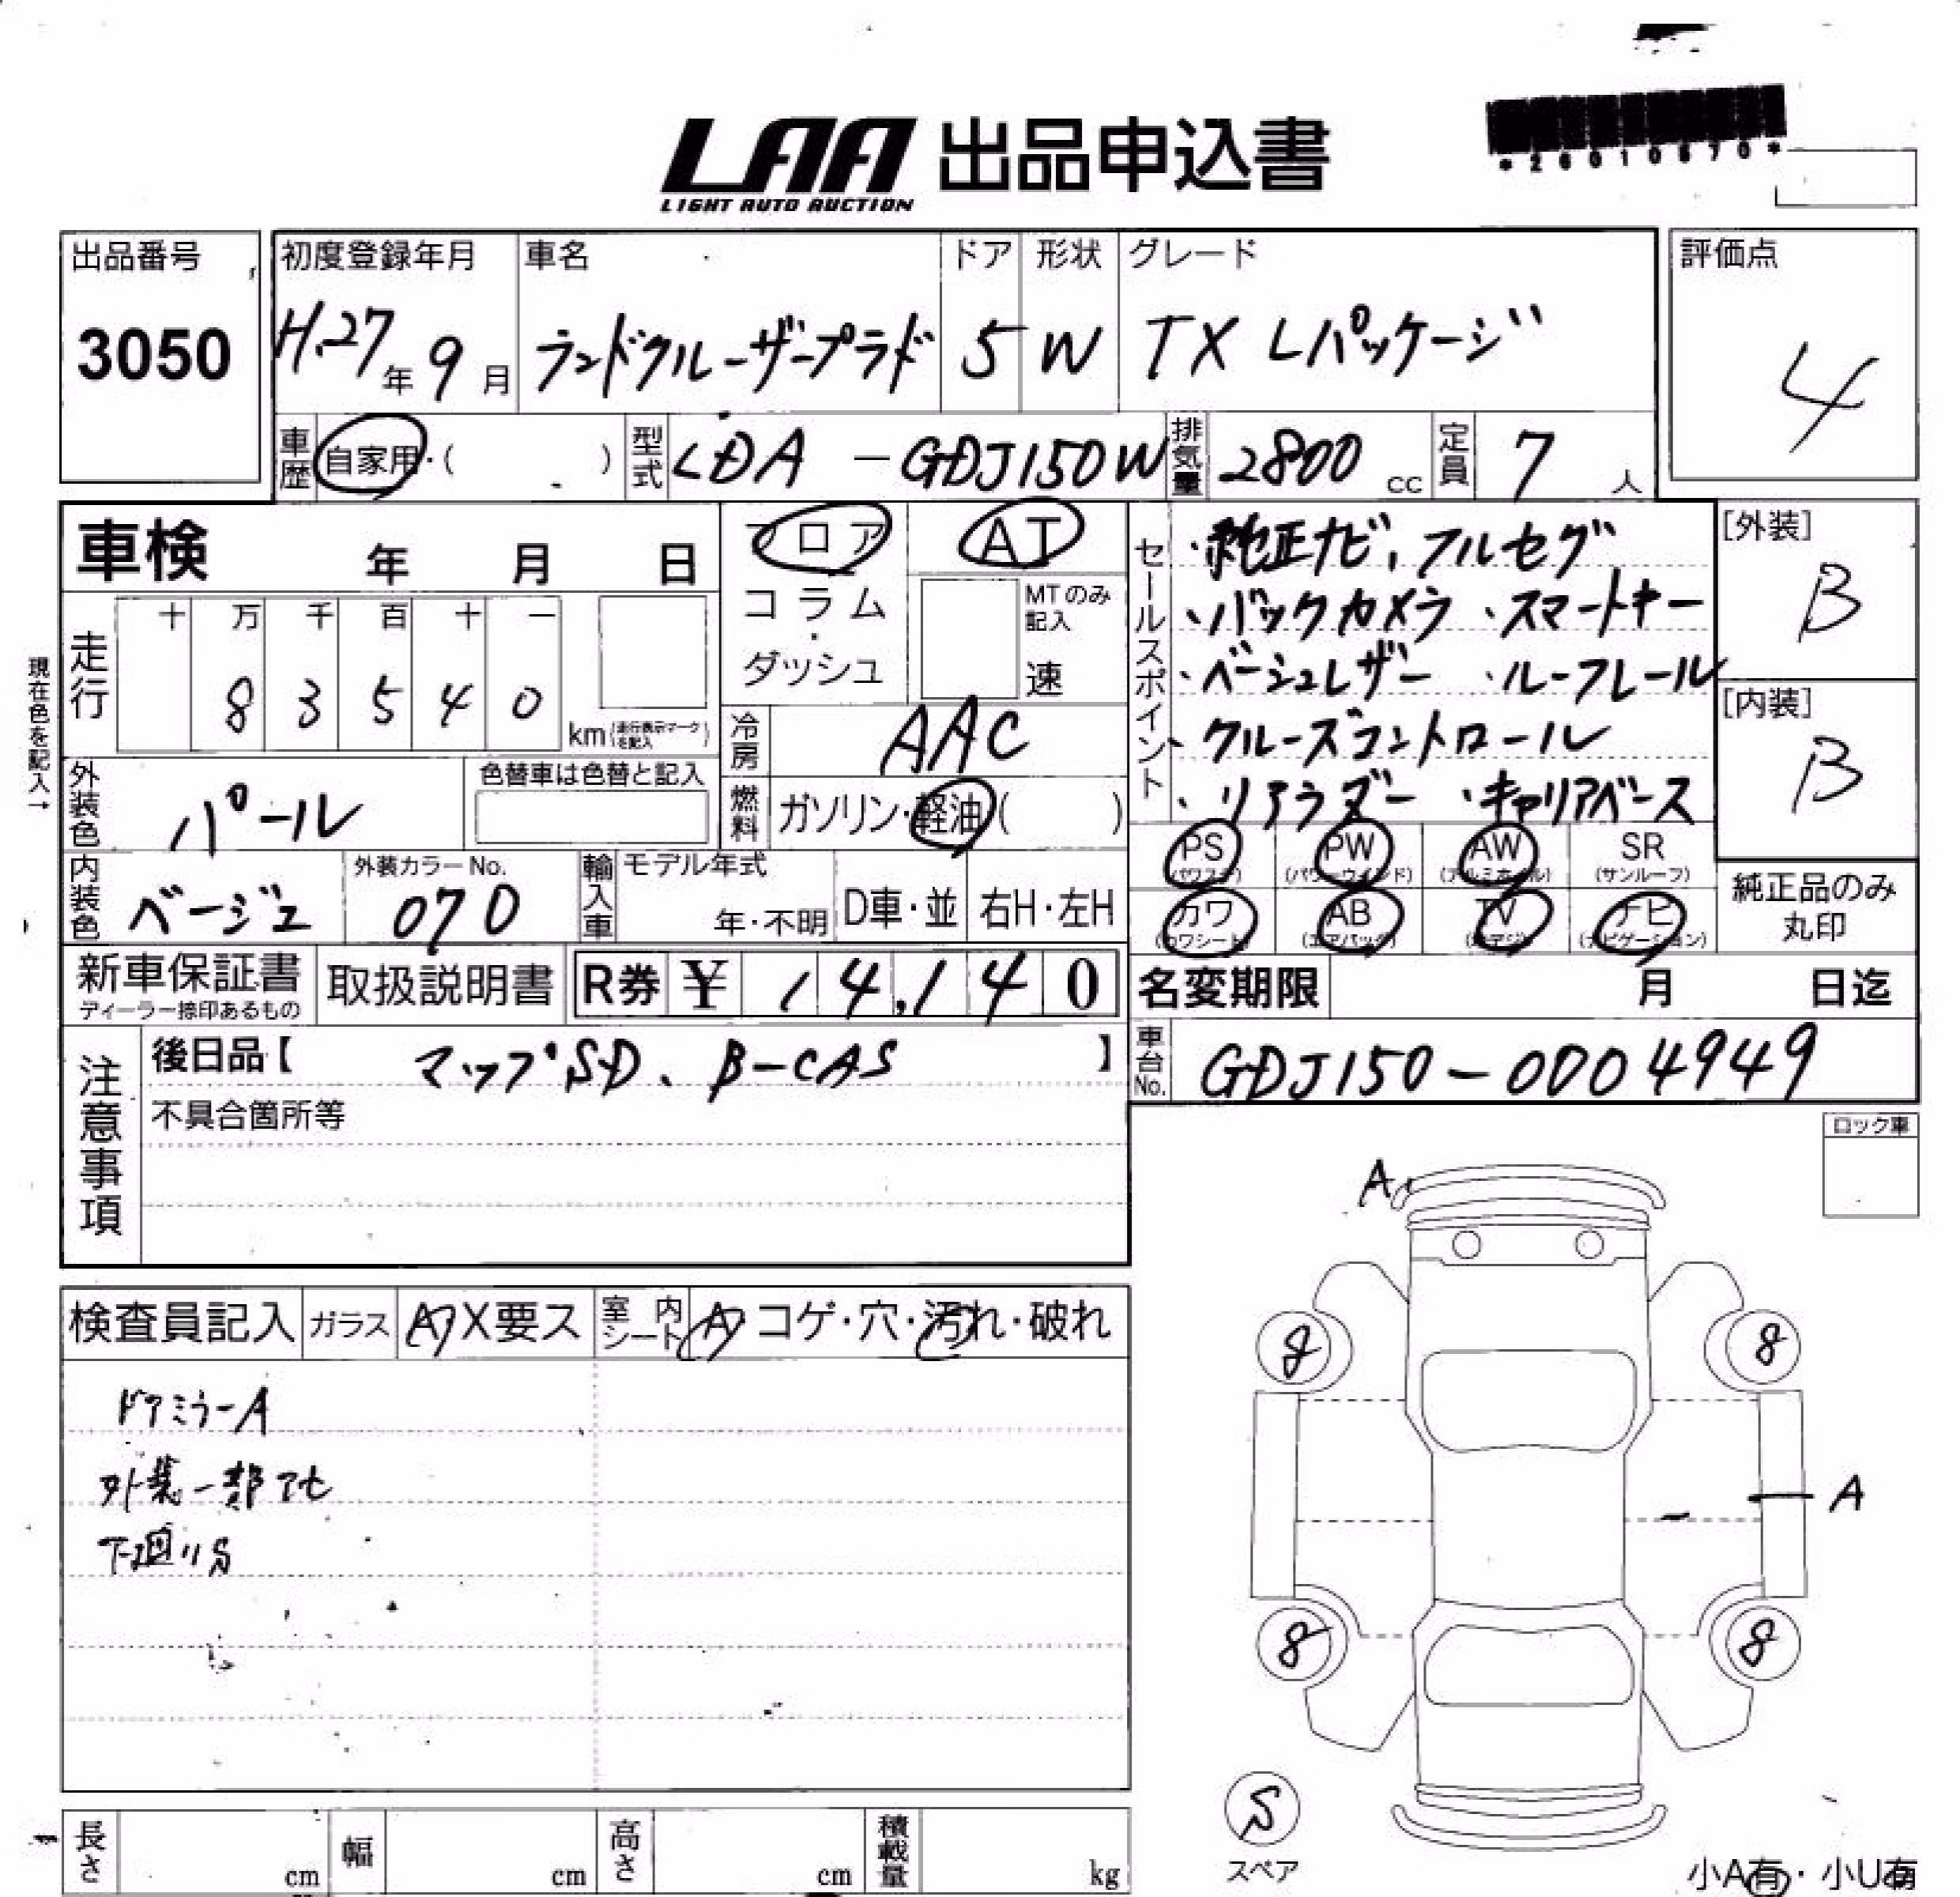 LAA 出品申込書
LIGHT AUTO AUCTION
*26010670*
出品番号
3050
初度登録年月
H.27年 9月
車名
ランドクルーザープラド
ドア
5
形状
W
グレード
TX Lパッケージ
評価点
4
車歴
自家用・( )
型式
LDA - GDJ150W
排気量
2800 cc
定員
7 人
車検 年 月 日
フロア
コラム
・
ダッシュ
AT
MTのみ
記入
速
現在色を記入→
走行
十 万 千 百 十 一
8 3 5 4 0
km(走行表示マークを記入)
冷房
AAC
外装色
パール
色替車は色替と記入
燃料
ガソリン・軽油( )
セールスポイント
・純正ナビ、フルセグ
・バックカメラ ・スマートキー
・ベージュレザー ・ルーフレール
・クルーズコントロール
・リアラダー ・キャリアベース
[外装]
B
[内装]
B
PS PW AW SR
(パワステ) (パワーウインド) (アルミホイル) (サンルーフ)
カワ AB TV ナビ
(カワシート) (エアバッグ) (地デジ) (ナビゲーション)
純正品のみ
丸印
内装色
ベージュ
外装カラーNo.
070
輸入車
モデル年式
年・不明
D車・並
右H・左H
新車保証書
ディーラー捺印あるもの
取扱説明書
R券 ¥ 14,140
名変期限 月 日迄
車台No.
GDJ150-0004949
注意事項
後日品【 マップSD、B-CAS 】
不具合箇所等
ロック車
検査員記入
ガラス
A X要ス
室内シート
A コゲ・穴・汚れ・破れ
ドアミラーA
外装一部アセ
下廻りS
A
8
8
A
8
8
S
スペア
長さ cm
幅 cm
高さ cm
積載量 kg
小A有・小U有